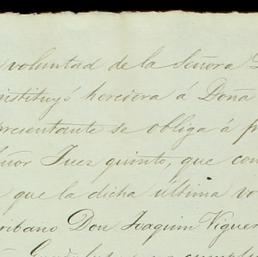 voluntad de la Señora
instituyó heredera á Doña
presentante se obliga á
Señor Juez quinto, que con
que la dicha última vo
cribano Don Joaquin Vigue